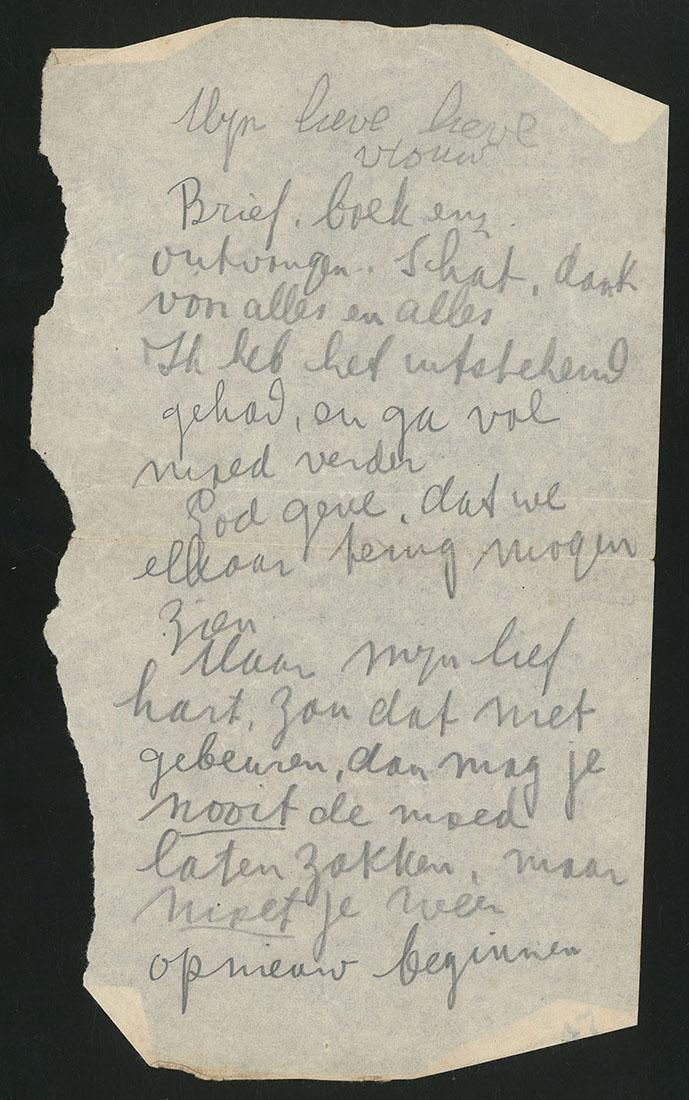 Mijn lieve lieve
vrouw
Brief, boek enz.
ontvangen. Schat, dank
voor alles en alles
Ik heb het uitstekend
gehad, en ga vol
moed verder
God geve, dat we
elkaar terug mogen
zien
Maar mijn lief
hart, zou dat niet
gebeuren, dan mag je
nooit de moed
laten zakken, maar
moet je weer
opnieuw beginnen